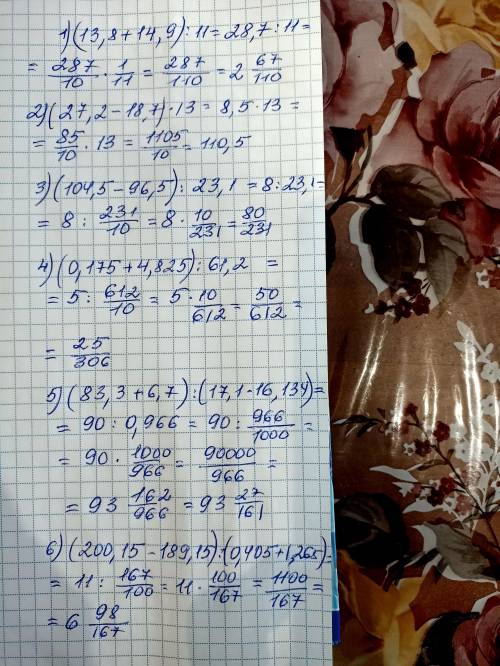 1) (13,8 + 14,9) : 11 = 28,7 : 11 =
= 287/10 · 1/11 = 287/110 = 2 67/110
2) (27,2 - 18,7) · 13 = 8,5 · 13 =
= 85/10 · 13 = 1105/10 = 110,5
3) (104,5 - 96,5) : 23,1 = 8 : 23,1 =
= 8 : 231/10 = 8 · 10/231 = 80/231
4) (0,175 + 4,825) : 61,2 =
= 5 : 612/10 = 5 · 10/612 = 50/612 =
= 25/306
5) (83,3 + 6,7) : (17,1 - 16,134) =
= 90 : 0,966 = 90 : 966/1000 =
= 90 · 1000/966 = 90000/966 =
= 93 162/966 = 93 27/161
6) (200,15 - 189,15) : (0,405 + 1,265) =
= 11 : 167/100 = 11 · 100/167 = 1100/167 =
= 6 98/167